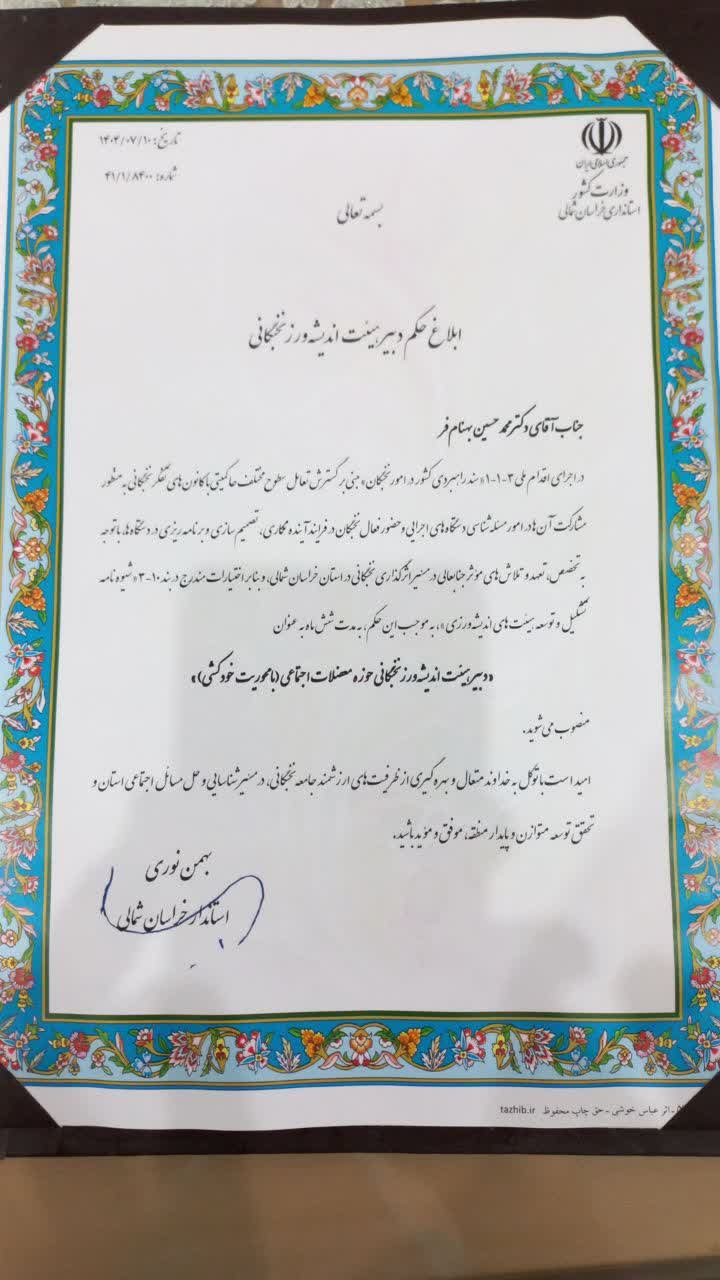 جمهوری اسلامی ایران
وزارت کشور
استانداری خراسان شمالی
تاریخ: ۱۴۰۴/۰۷/۱۰
شماره: ۴۱/۱/۸۴۰۰
بسمه تعالی
ابلاغ حکم دبیر هیئت اندیشه ورز نخبگانی
جناب آقای دکتر محمد حسین بهنام فر
در اجرای اقدام ملی ۳-۱-۱ «سند راهبردی کشور در امور نخبگان» مبنی بر گسترش تعامل سطوح مختلف حاکمیتی با کانون های تفکر نخبگانی به منظور
مشارکت آن ها در امور مسئله شناسی دستگاه های اجرایی و حضور فعال نخبگان در فرایند آینده نگاری، تصمیم سازی و برنامه ریزی در دستگاه ها، با توجه
به تخصص، تعهد و تلاش های مؤثر جنابعالی در مسیر اثرگذاری نخبگانی در استان خراسان شمالی، و بنابر اختیارات مندرج در بند ۱۰-۳ «شیوه نامه
تشکیل و توسعه هیئت های اندیشه ورزی»، به موجب این حکم، به مدت شش ماه به عنوان
«دبیر هیئت اندیشه ورز نخبگانی حوزه معضلات اجتماعی (با محوریت خودکشی)»
منصوب می شوید.
امید است با توکل به خداوند متعال و بهره گیری از ظرفیت های ارزشمند جامعه نخبگانی، در مسیر شناسایی و حل مسائل اجتماعی استان و
تحقق توسعه متوازن و پایدار منطقه، موفق و مؤید باشید.
بهمن نوری
استاندار خراسان شمالی
اثر عباس خوشی - حق چاپ محفوظ tazhib.ir